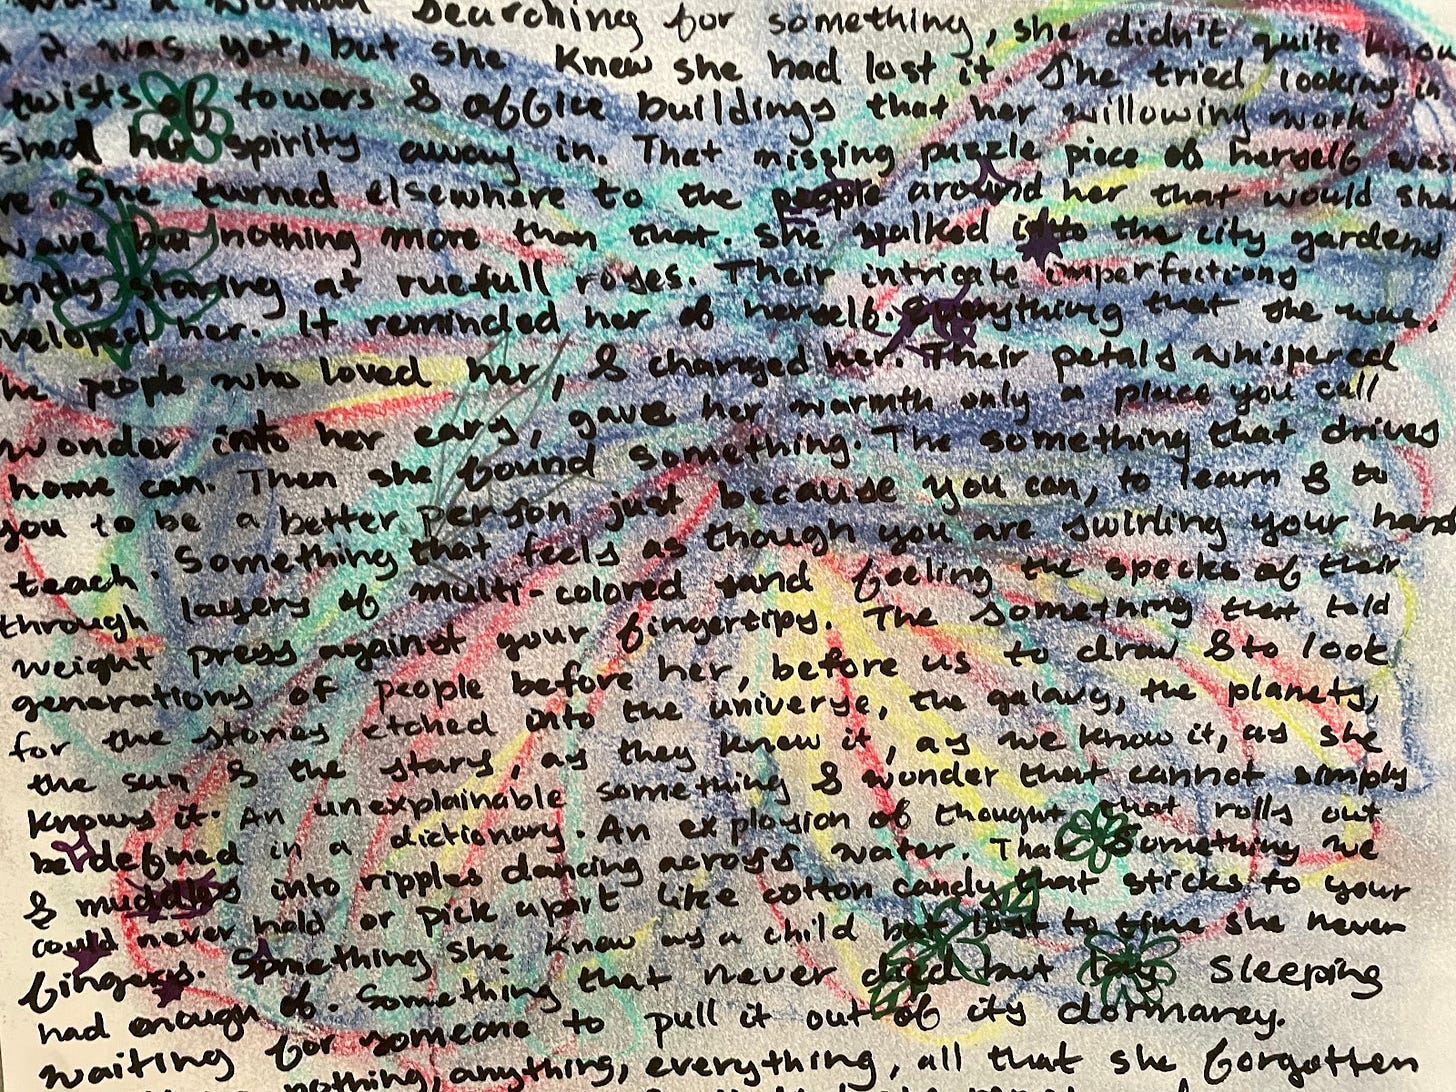 was a woman searching for something, she didn't quite know
it was yet, but she knew she had lost it. She tried looking in
twists of towers & office buildings that her willowing work
shed her spirity away in. That missing puzzle piece of herself was
She turned elsewhere to the people around her that would sha
wave but nothing more than that. She walked into the city gardens
ently staring at ruefull roses. Their intricate imperfections
veloped her. It reminded her of herself. Everything that she was,
he people who loved her, & changed her. Their petals whispered
wonder into her ears, gave her warmth only a place you call
home can. Then she found something. The something that drives
you to be a better person just because you can, to learn & to
teach. Something that feels as though you are swirling your hand
through layers of multi-colored sand feeling the specks of their
weight press against your fingertips. The something that told
generations of people before her, before us to draw & to look
for the stories etched into the universe, the galaxy, the planets,
the sun & the stars, as they know it, as we know it, as she
knows it. An unexplainable something & wonder that cannot simply
be defined in a dictionary. An explosion of thought that rolls out
& muddles into ripples dancing across water. That Something we
could never hold or pick apart like cotton candy that sticks to your
fingers. Something she knew as a child but lost to time she never
had enough of. Something that never died but lay sleeping
waiting for someone to pull it out of its dormancy.
nothing, anything, everything, all that she forgotten